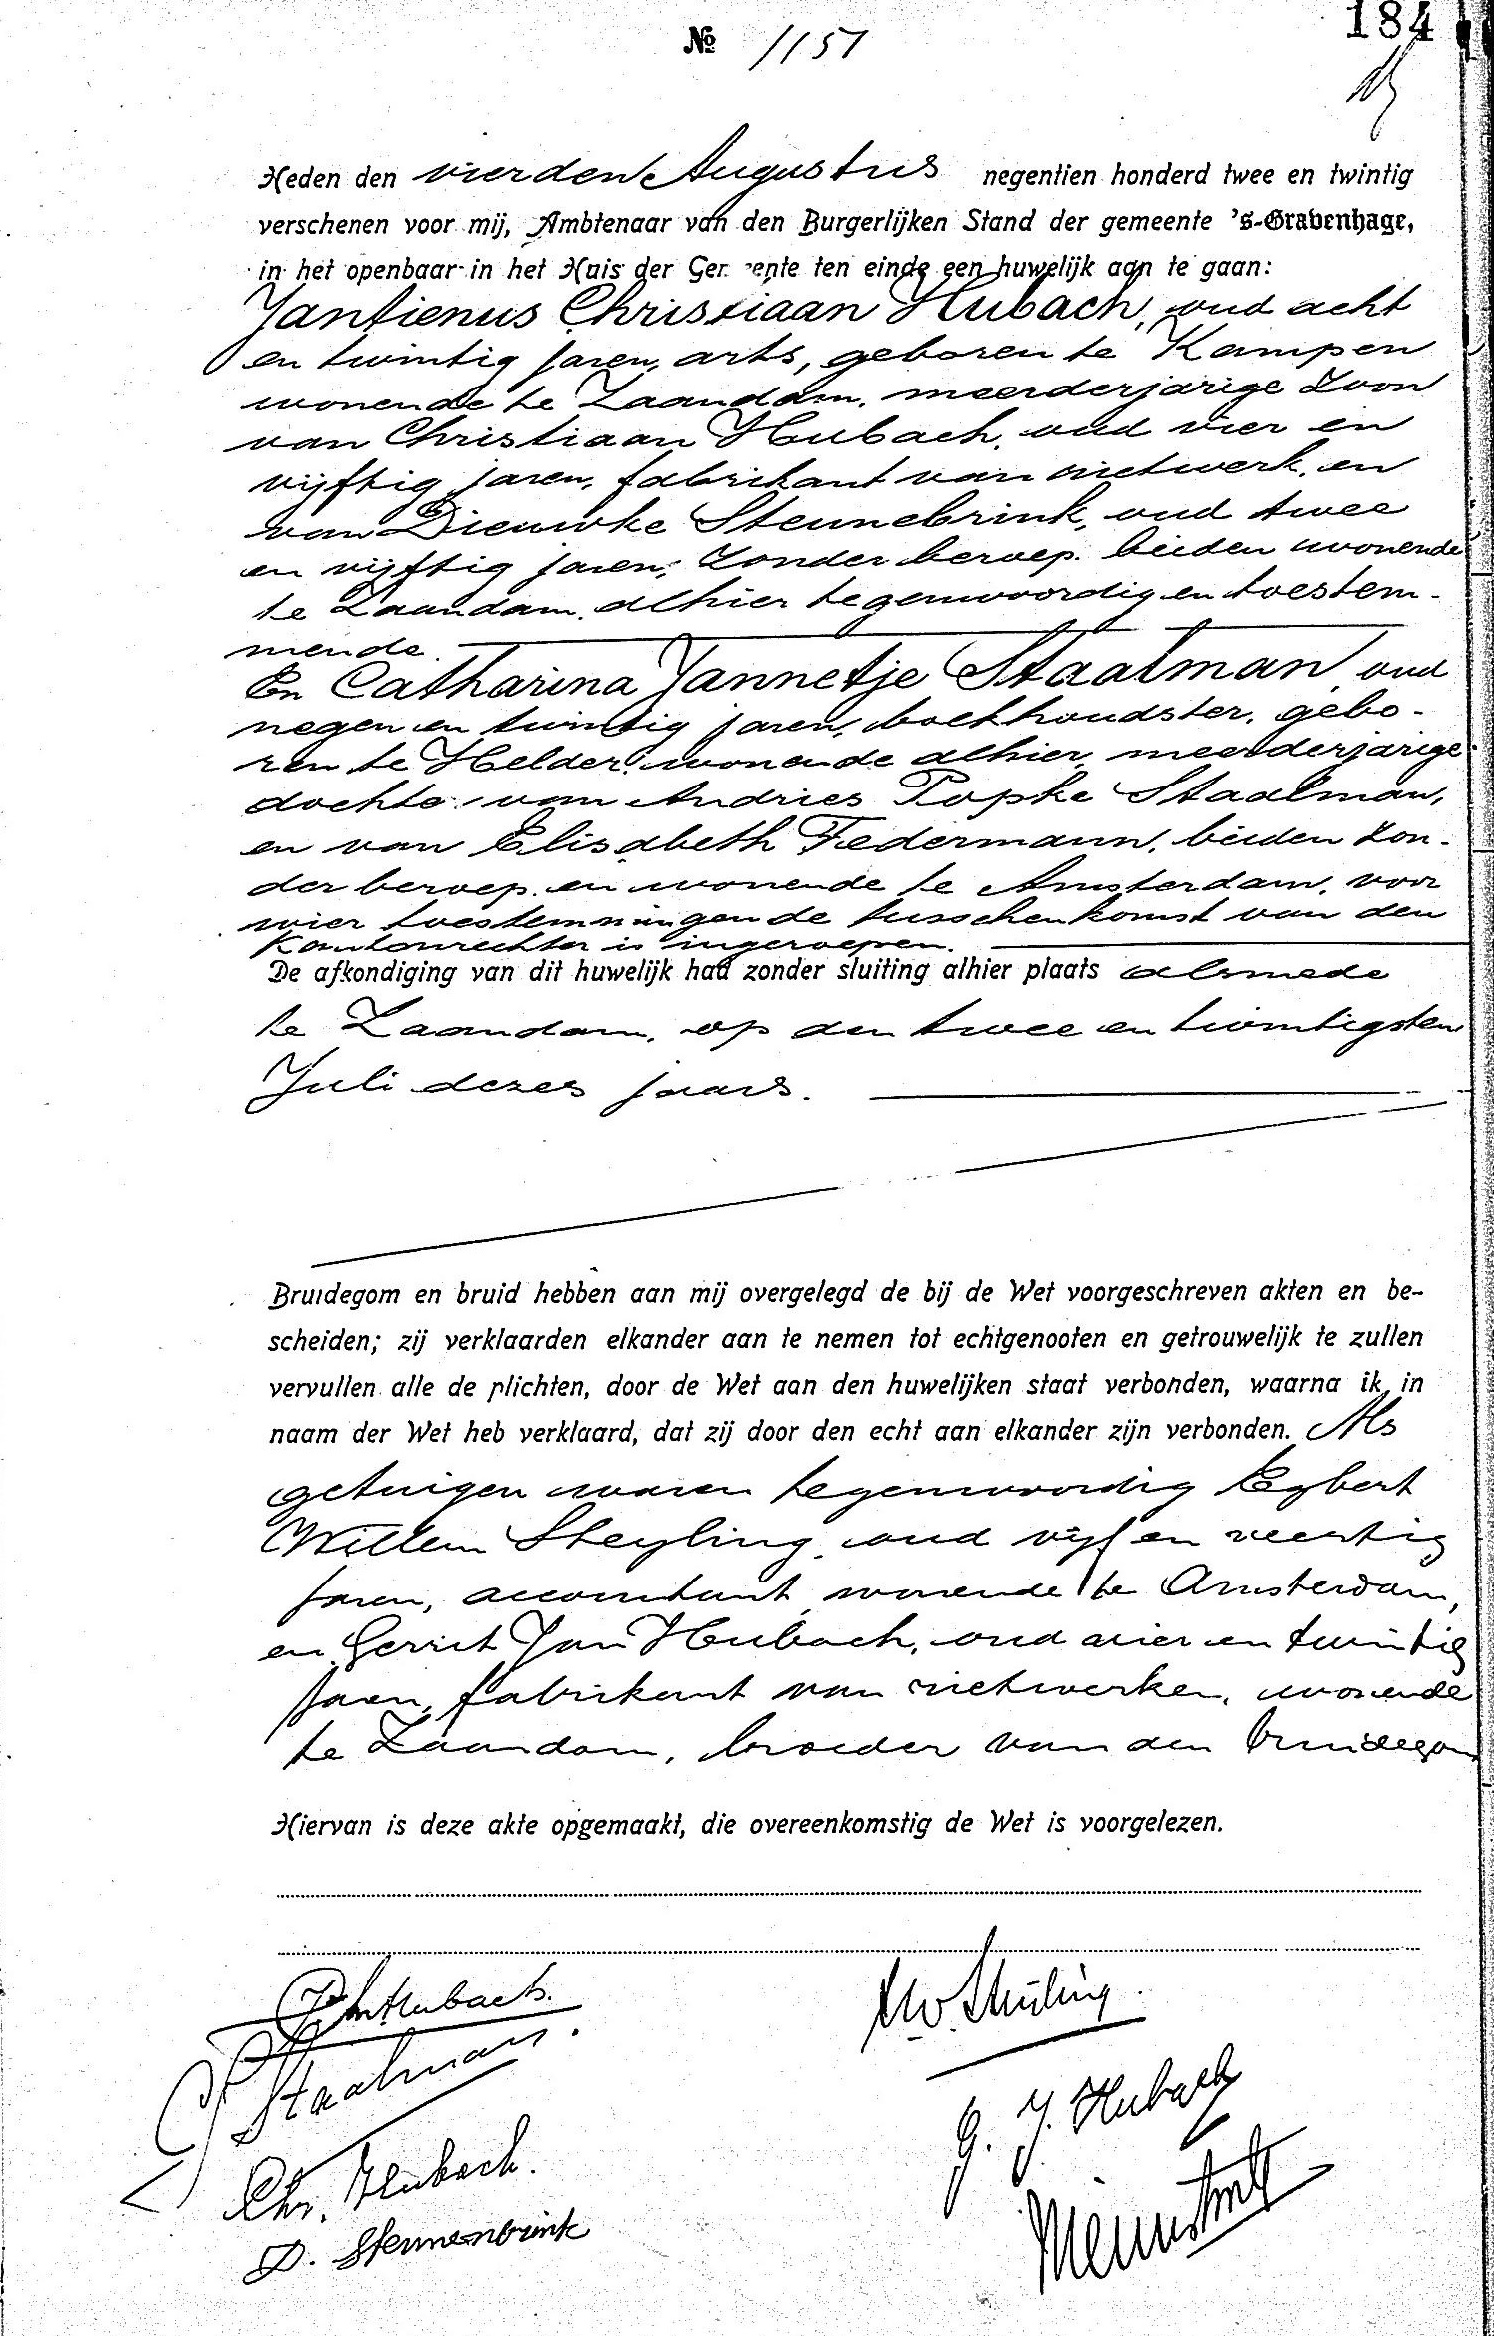 184
№ 1151
Heden den vierden Augustus negentien honderd twee en twintig
verschenen voor mij, Ambtenaar van den Burgerlijken Stand der gemeente 's-Gravenhage,
in het openbaar in het Huis der Gemeente ten einde een huwelijk aan te gaan:
Jantienus Christiaan Hubach, oud acht
en twintig jaren, arts, geboren te Kampen
wonende te Zaandam, meerderjarige zoon
van Christiaan Hubach, oud vier en
vijftig jaren, fabrikant van rietwerk, en
van Dieuwke Stennebrink, oud twee
en vijftig jaren, zonder beroep, beiden wonende
te Zaandam, alhier tegenwoordig en toestem-
mende.
En Catharina Jannetje Staalman, oud
negen en twintig jaren, boekhoudster, gebo-
ren te Helder, wonende alhier, meerderjarige
dochter van Andries Popke Staalman,
en van Elisabeth Federmann, beiden zon-
der beroep en wonende te Amsterdam, voor
wier toestemming de tusschenkomst van den
Kantonrechter is ingeroepen.
De afkondiging van dit huwelijk had zonder sluiting alhier plaats alsmede
te Zaandam, op den twee en twintigsten
Juli dezes jaars.
Bruidegom en bruid hebben aan mij overgelegd de bij de Wet voorgeschreven akten en be-
scheiden; zij verklaarden elkander aan te nemen tot echtgenooten en getrouwelijk te zullen
vervullen alle de plichten, door de Wet aan den huwelijken staat verbonden, waarna ik in
naam der Wet heb verklaard, dat zij door den echt aan elkander zijn verbonden. Als
getuigen waren tegenwoordig Egbert
Willem Steyling, oud vijf en veertig
jaren, accountant, wonende te Amsterdam,
en Gerrit Jan Hubach, oud vier en twintig
jaren, fabrikant van rietwerken, wonende
te Zaandam, broeder van den bruidegom
Hiervan is deze akte opgemaakt, die overeenkomstig de Wet is voorgelezen.
Hubach.
Staalman.
Chr. Hubach.
D. Stennenbrink
G. J. Hubach